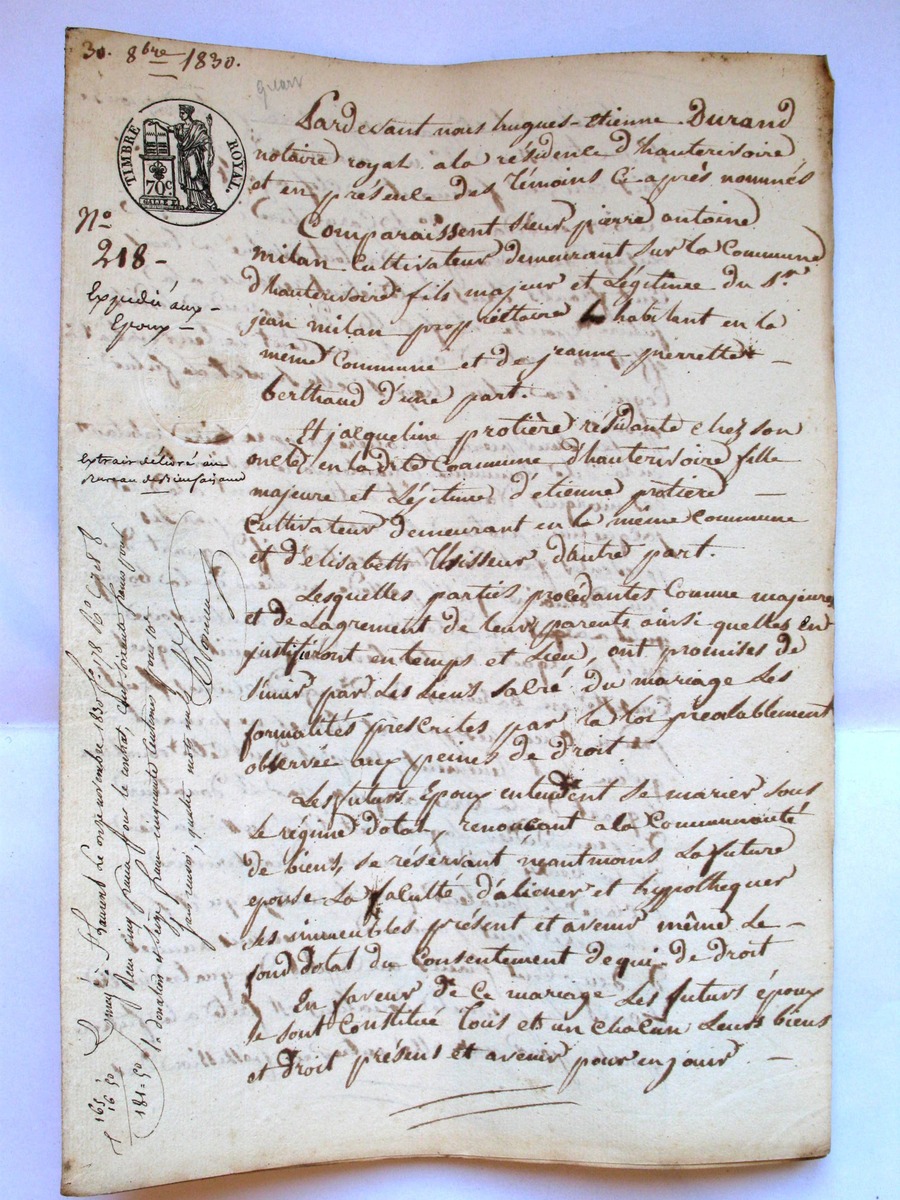 30. 8bre 1830.
TIMBRE ROYAL
70c.
No
218 -
Expédié aux -
Epoux -
Extrait délivré au
Bureau de Bienfaisance
Pardevant nous hugues-etienne Durand
notaire royal a la résidence d'hauterivoire
et en présence des témoins Ci-après nommés
Comparaissent Sieur pierre antoine
milan Cultivateur demeurant sur la Commune
d'hauterivoire fils majeur et Légitime du Sr.
jean milan propriétaire habitant en la
même Commune et de jeanne pierrette -
berthaud d'une part.
Et jacqueline protière résidante chez son
oncle, en ladite Commune d'hauterivoire fille
majeure et Légitime d'etienne protière -
Cultivateur demeurant en la même commune
et d'élisabeth d'autre part.
Lesquelles parties procédantes Comme majeures
et de Lagrément de leurs parents ainsi quelles en
justifiront en temps et Lieu, ont promises de
S'unir par Les Liens sacré du mariage Les
formalités prescrites par la loi préalablement
observée aux peines de droit.
Les futurs Epoux entendent se marier sous
Le régime dotal, renonçant a la Communauté
de biens, se réservant néantmoins La future
epouse La faculté d'aliéner et hypothequer
ses immeubles présent et avenir même Le -
fond dotal du Consentement de qui de droit
En faveur de Ce mariage Les futurs époux
se sont Constitué tous et un chacun Leurs biens
et droit présent et avenir pour en jouir -
Laurent Le onze novembre 1830 f° 178
cinq francs pour le contrat, cent soixante francs pour
la donation et seize francs cinquante Centimes pour 10e
165
16 50
181=50